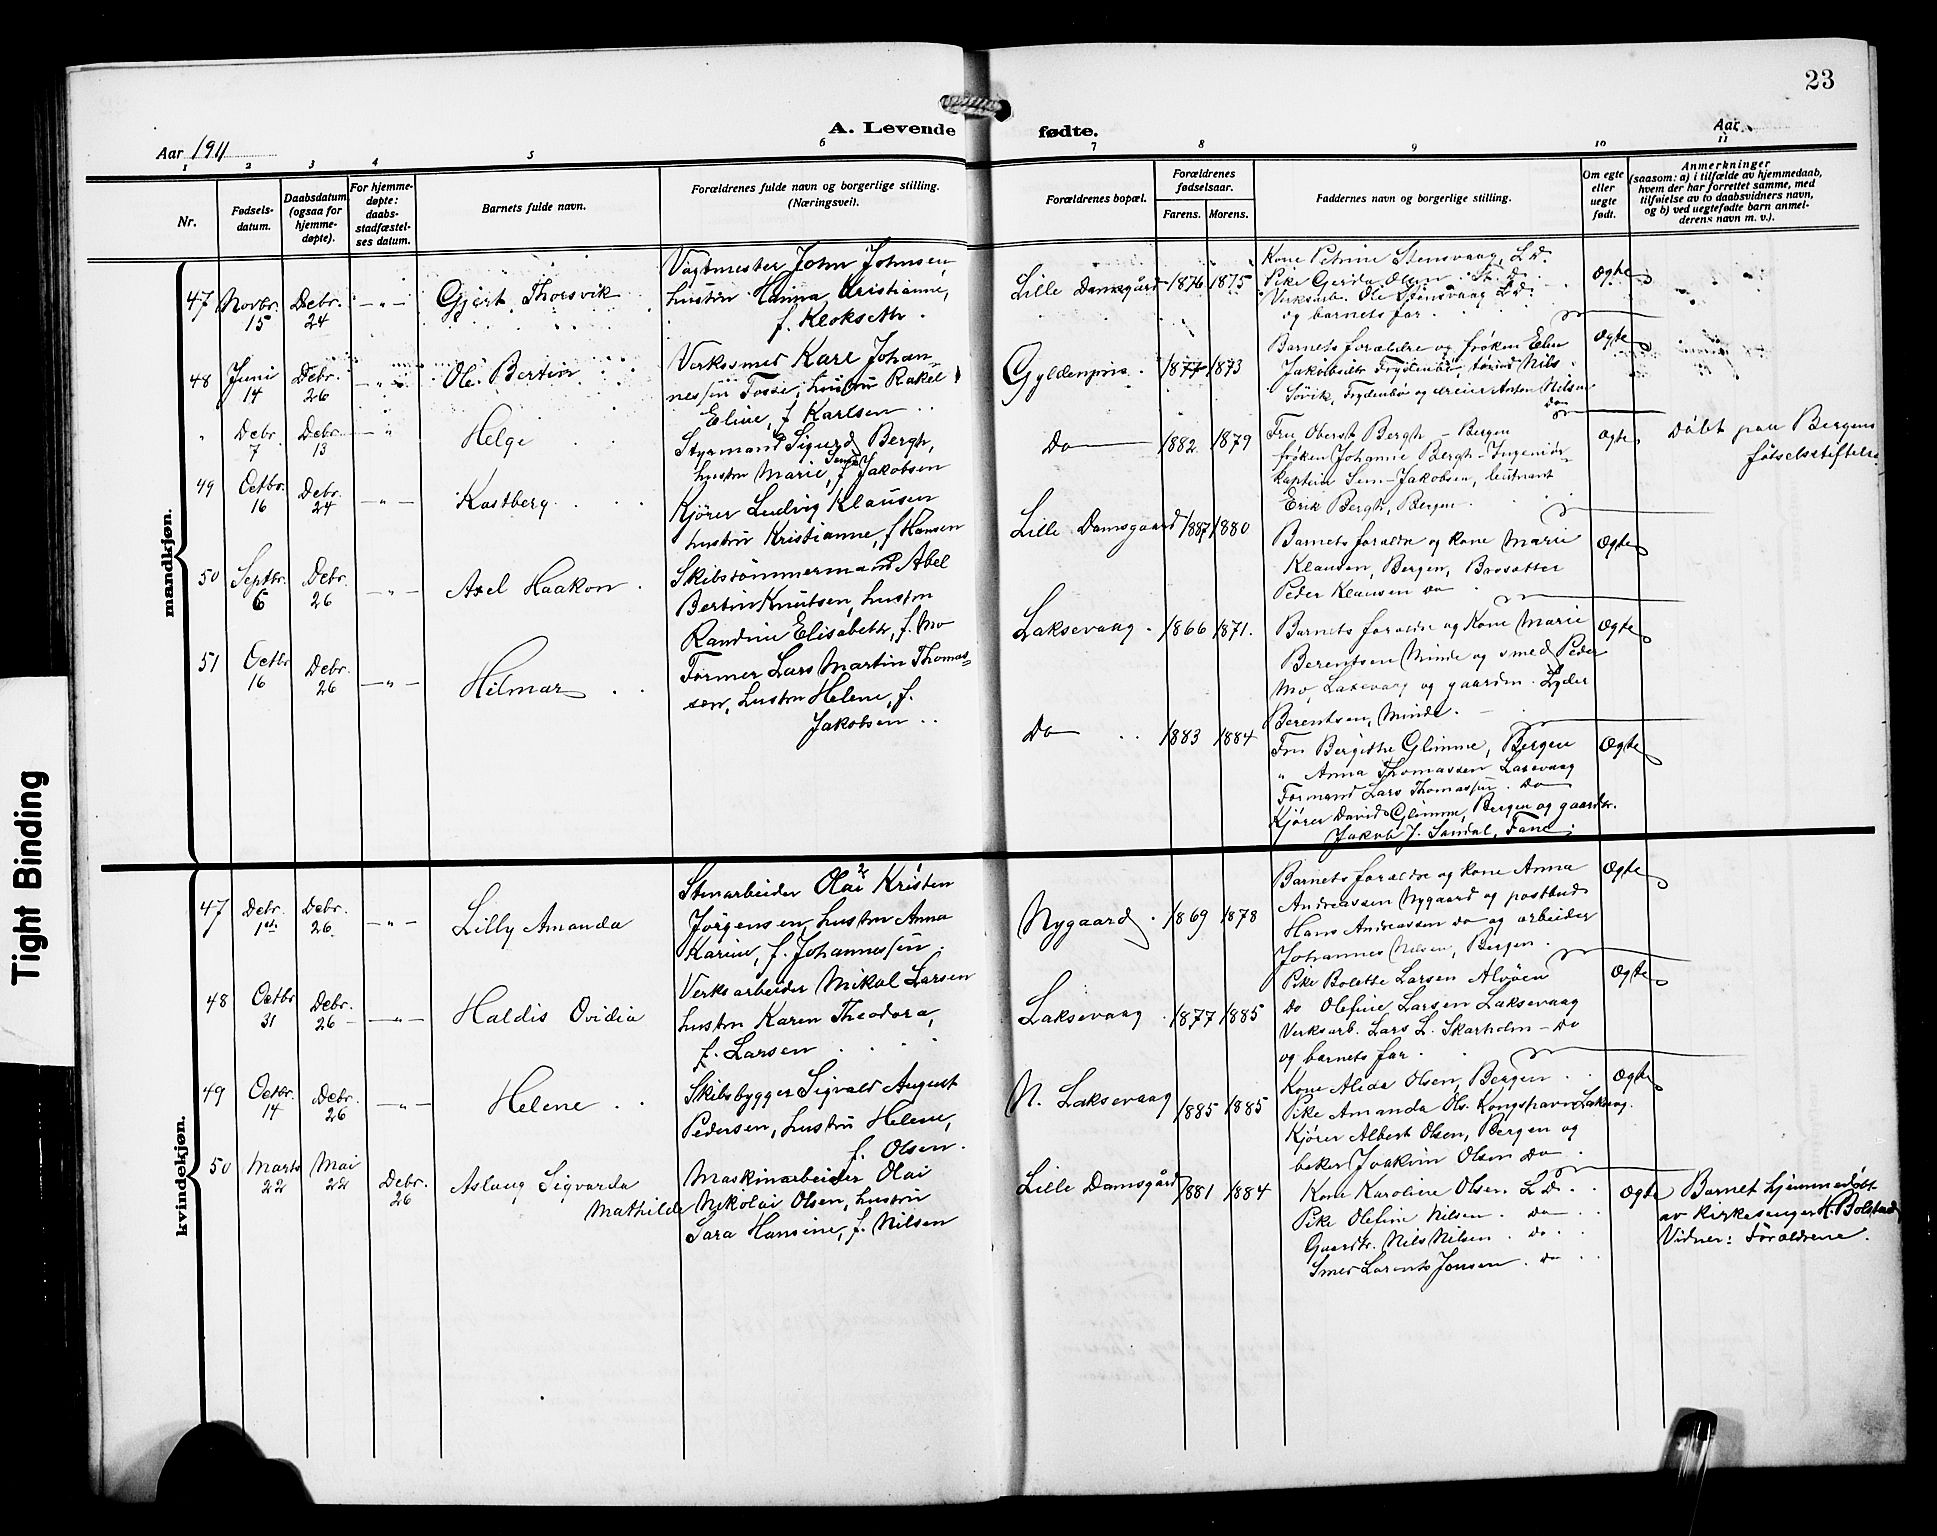 23
A. Levende fødte.
Aar 1911
Aar
1 2 3 4 5 6 7 8 9 10 11
Nr.
Fødsels-
datum.
Daabsdatum
(ogsaa for
hjemme-
døpte).
For hjemme-
døpte:
daabs-
stadfæstel-
ses datum.
Barnets fulde navn.
Forældrenes fulde navn og borgerlige stilling.
(Næringsvei).
Forældrenes bopæl.
Forældrenes
fødselsaar.
Farens. Morens.
Faddernes navn og borgerlige stilling.
Om egte
eller
uegte
født.
Anmerkninger
(saasom: a) i tilfælde av hjemmedaab,
hvem der har forrettet samme, med
tilføielse av to daabsvidners navn,
og b) ved uegtefødte barn anmel-
derens navn m. v.).
mandkjøn.
47 Novbr. 15 Debr. 24 —„— Gjert Thorsvik
Vagtmester John Johnsen,
hustru Hanna Kristianne,
f. Klokseth.
Lille Damsgård 1876 1875
Kone Petrine Stensvaag, L D.
Pike Gerda Olsen St. D.
Verksarb. Ole Stensvaag L D.
og barnets far.
Ægte
48 Juni 14 Debr. 26 —„— Ole Bertin
Verksmed Karl Johan-
nessen Fosse, hustru Rakel
Eline, f. Karlsen
Gyldenpris. 1877 1873
Barnets forældre og frøken Elen
Jakobsen Frydenbø, tømm. Nils
Søvik, Frydenbø og dreier Anton Nilsen
do
Ægte
„ Debr. 7 Debr. 13 —„— Helge
Styrmand Sigurd Bergh,
hustru Marie, f. Sem Jakobsen
Do 1882 1879
Fru Oberst Bergh – Bergen
frøken Johanne Bergh – Ingeniør
Kaptein Sem-Jakobsen, leutnant
Erik Bergh, Bergen.
Ægte
Døbt paa Bergens
fötselsstiftelse
49 Octbr. 16 Debr. 24 —„— Kastberg
Kjører Ludvig Klausen
hustru Kristianne, f Hansen
Lille Damsgaard 1887 1880
Barnets forældre og kone Marie
Klausen, Bergen, Bøssøtter
Peder Klausen do
Ægte
50 Septbr. 6 Debr. 26 —„— Axel Haakon
Skibstømmermand Abel
Bertin Knutsen, hustru
Randine Elisabeth, f. Mo
Laksevaag. 1866 1871.
Barnets forældre og Kone Marie
Berentsen Minde og smed Peder
Mo, Laksevaag og gaardm. Lyder
Berentsen, Minde.
Ægte
51 Octbr 16 Debr. 26 —„— Hilmar
Former Lars Martin Thomas-
sen, hustru Helene, f.
Jakobsen
Do 1883 1884
Fru Bergithe Glimme, Bergen
„ Anna Thomassen Laksevaag
Formand Lars Thomassen do
Kjører David Glimme, Bergen og gaardbr.
Jakob J. Sandal, Fane.
Ægte
kvindekjøn.
47 Debr. 1ste Debr. 26. —„— Lilly Amanda
Stenarbeider Olai Kristen
Jørgensen, hustru Anna
Karine, f. Johannessen.
Nygaard. 1869 1878
Barnets forældre og kone Anna
Andreassen Nygaard og postbud
Hans Andreassen do og arbeider
Johannes Nilsen, Bergen.
Ægte
48 Octbr 31 Debr. 26 —„— Haldis Ovidia
Verksarbeider Mikal Larsen
hustru Karen Theodora,
f. Larsen
Laksevaag 1877 1885
Pike Bolette Larsen Alvøen
Do Olefine Larsen Laksevaag
Verksarb. Lars L. Skarholm – do
og barnets far.
Ægte
49 Octbr. 14 Debr. 26 —„— Helene
Skibsbygger Sigvald August
Pedersen, hustru Helene,
f. Olsen.
N. Laksevaag 1885 1885
Kone Alida Olsen, Bergen
Pike Amanda Ols. Kongshavn Laksevaag.
Kjører Albert Olsen, Bergen og
beker Joakim Olsen do
Ægte
50 Marts 22 Mai 22 Debr. 26 Aslaug Sigvarda
Mathilde
Maskinarbeider Olai
Nikolai Olsen, hustru
Sara Hansine, f. Nilsen
Lille Damsgård 1881 1884
Kone Karoline Olsen. L D.
Pike Olefine Nilsen. do
Gaardbr. Nils Nilsen. do
Smed Larents Jonsen. do
Ægte
Barnet hjemmedøbt
av kirkesanger H. Bolstad
Vidner: Forældrene.
Tight Binding